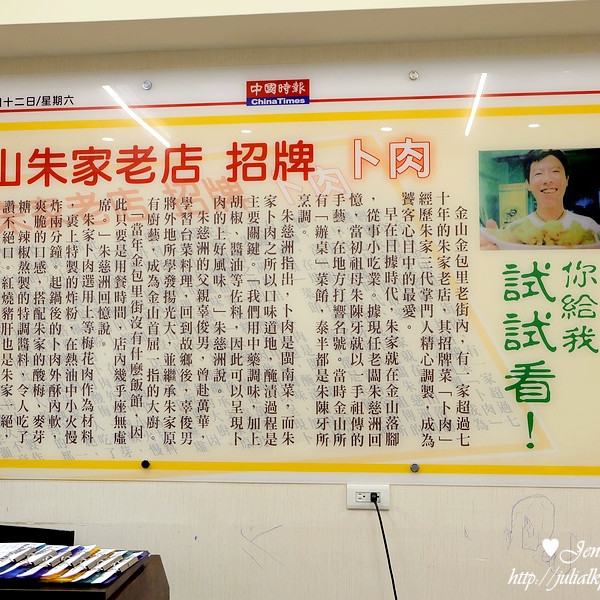 十二日/星期六
中國時報
ChinaTimes
山朱家老店 招牌 卜肉
你給我
試試看！
金山金包里老街內，有一家超過七
十年的朱家老店，其招牌菜「卜肉」
經歷朱家三代掌門人精心調製，成為
饕客心目中的最愛。
早在日據時代，朱家就在金山落腳
，從事小吃業。據現任老闆朱慈洲回
憶，當初祖母朱陳牙就以一手祖傳的
手藝，在地方打響名號。當時金山所
有「辦桌」菜餚，泰半都是朱陳牙所
烹調。
朱慈洲指出，卜肉是閩南菜，而朱
家卜肉之所以口味道地，醃漬過程是
主要關鍵。「我們用中藥調味，加上
胡椒、醬油等佐料，因此可以呈現卜
肉的上好風味。」朱慈洲說。
朱慈洲的父親辜俊男，曾赴萬華，
學習台菜料理，回到故鄉後，辜俊男
將外地所學發揚光大，並繼承朱家原
有廚藝，成為金山首屈一指的大廚。
「當年金包里街沒有什麼飯館，因
此只要是用餐時間，店內幾乎座無虛
席。」朱慈洲回憶說。
朱家卜肉選用上等梅花肉作為材料
，裹上特製的炸粉，在熱油中小火慢
炸兩分鐘。起鍋後的卜肉外酥內軟，
爽脆的口感，搭配朱家的酸梅、麥芽
糖、辣椒熬製的特調醬料，令人吃了
讚不絕口。紅燒豬肝也是朱家一絕，
♥Jen
http://julialk